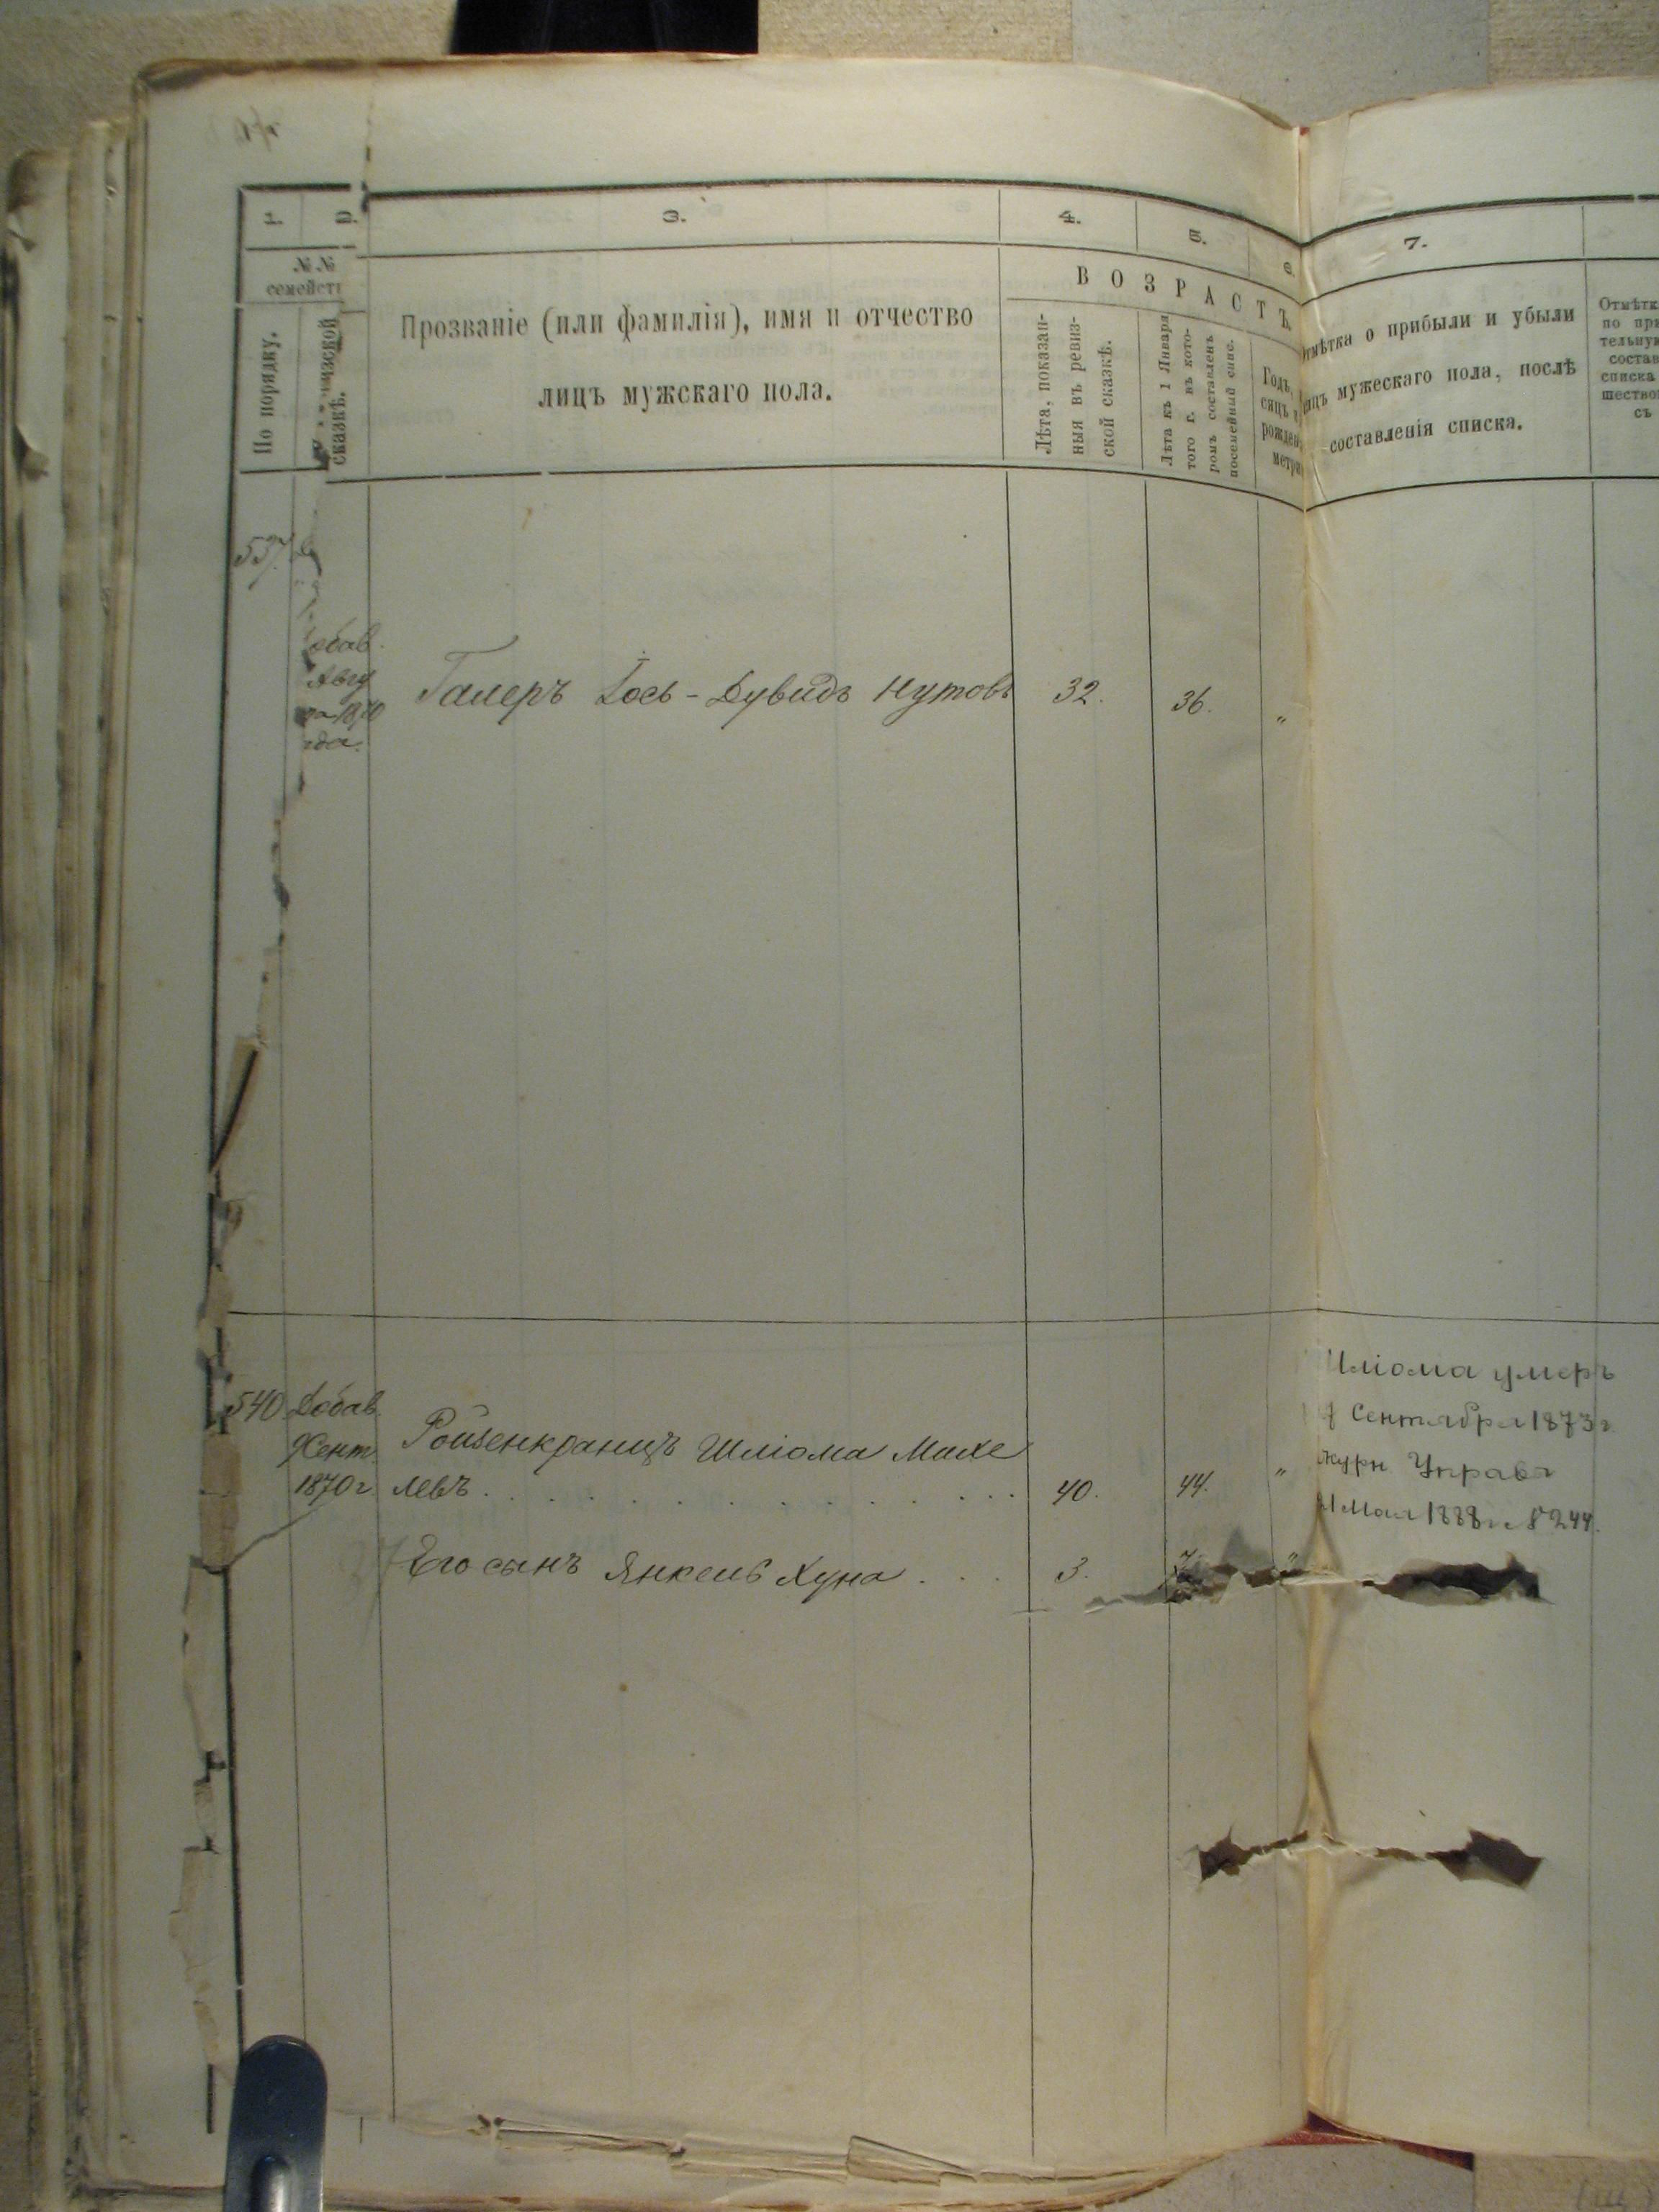 1.
2.
3.
4.
5.
6.
7.
№ №
семейст
По порядку.
сказкѣ.
Прозваніе (или фамилія), имя и отчество
лицъ мужскаго пола.
ВОЗРАСТЪ
Лѣта, показан-
ныя въ ревиз-
ской сказкѣ.
Лѣта къ 1 Января
того г. въ кото-
ромъ составленъ
посемейный спис.
Годъ,
сяцъ и
рожден
метри
мѣтка о прибыли и убыли
ицъ мужескаго пола, послѣ
составленія списка.
Отмѣтк
по при
тельную
состав
списка
шество
съ
537.
обав.
Авгу
та 1870
года.
Галеръ Іось-Дувидъ Нутовъ 32. 36. "
540 Добав.
Сент.
1870 г.
Ройзенкранцъ Шліома Михе
левъ 40. 44. "
Его сынъ Янкель Хуна 3. 7
Шліома умеръ
Сентября 1873 г
журн Управы
Мая 1888 г. № 244.